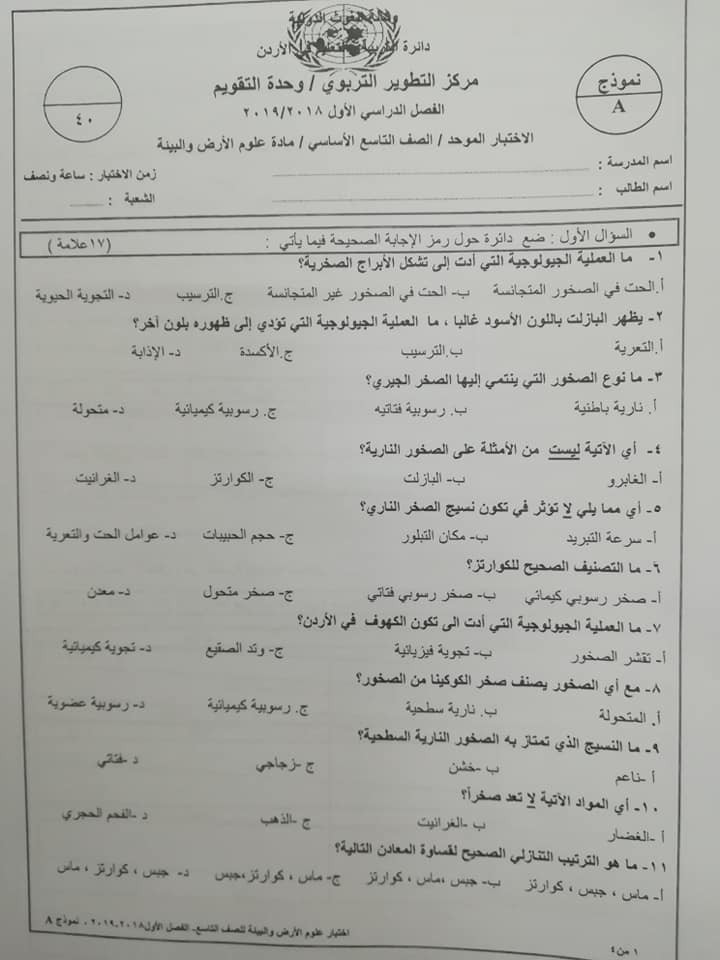 وكالة الغوث الدولية
دائرة التربية والتعليم في الأردن
مركز التطوير التربوي / وحدة التقويم
نموذج
A
٤٠
الفصل الدراسي الأول ٢٠١٩/٢٠١٨
الاختبار الموحد / الصف التاسع الأساسي / مادة علوم الأرض والبيئة
اسم المدرسة : زمن الاختبار : ساعة ونصف
اسم الطالب : الشعبة :
• السؤال الأول : ضع دائرة حول رمز الإجابة الصحيحة فيما يأتي : (١٧علامة )
١- ما العملية الجيولوجية التي أدت إلى تشكل الأبراج الصخرية؟
أ.الحت في الصخور المتجانسة ب- الحت في الصخور غير المتجانسة ج.الترسيب د- التجوية الحيوية
٢- يظهر البازلت باللون الأسود غالبا ، ما العملية الجيولوجية التي تؤدي إلى ظهوره بلون آخر؟
أ.التعرية ب.الترسيب ج.الأكسدة د- الإذابة
٣- ما نوع الصخور التي ينتمي إليها الصخر الجيري؟
أ. نارية باطنية ب. رسوبية فتاتيه ج. رسوبية كيميائية د- متحولة
٤- أي الآتية ليست من الأمثلة على الصخور النارية؟
أ- الغابرو ب- البازلت ج- الكوارتز د- الغرانيت
٥- أي مما يلي لا تؤثر في تكون نسيج الصخر الناري؟
أ- سرعة التبريد ب- مكان التبلور ج- حجم الحبيبات د- عوامل الحت والتعرية
٦- ما التصنيف الصحيح للكوارتز؟
أ- صخر رسوبي كيمائي ب- صخر رسوبي فتاتي ج- صخر متحول د- معدن
٧- ما العملية الجيولوجية التي أدت الى تكون الكهوف في الأردن؟
أ- تقشر الصخور ب- تجوية فيزيائية ج- وتد الصقيع د- تجوية كيميائية
٨- مع أي الصخور يصنف صخر الكوكينا من الصخور؟
أ. المتحولة ب. نارية سطحية ج. رسوبية كيميائية د- رسوبية عضوية
٩- ما النسيج الذي تمتاز به الصخور النارية السطحية؟
أ -ناعم ب -خشن ج -زجاجي د -فتاتي
١٠- أي المواد الآتية لا تعد صخراً؟
أ -الغضار ب -الغرانيت ج -الذهب د -الفحم الحجري
١١- ما هو الترتيب التنازلي الصحيح لقساوة المعادن التالية؟
أ- ماس ، جبس ، كوارتز ب- جبس ،ماس ، كوارتز ج- ماس ، كوارتز،جبس د- جبس ، كوارتز ، ماس
اختبار علوم الأرض والبيئة للصف التاسع- الفصل الأول٢٠١٨-٢٠١٩ . نموذج A
١ من ٤